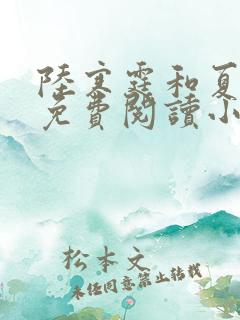 陸寒霆和夏
免費閱讀小
松本文
未經同意禁止轉載